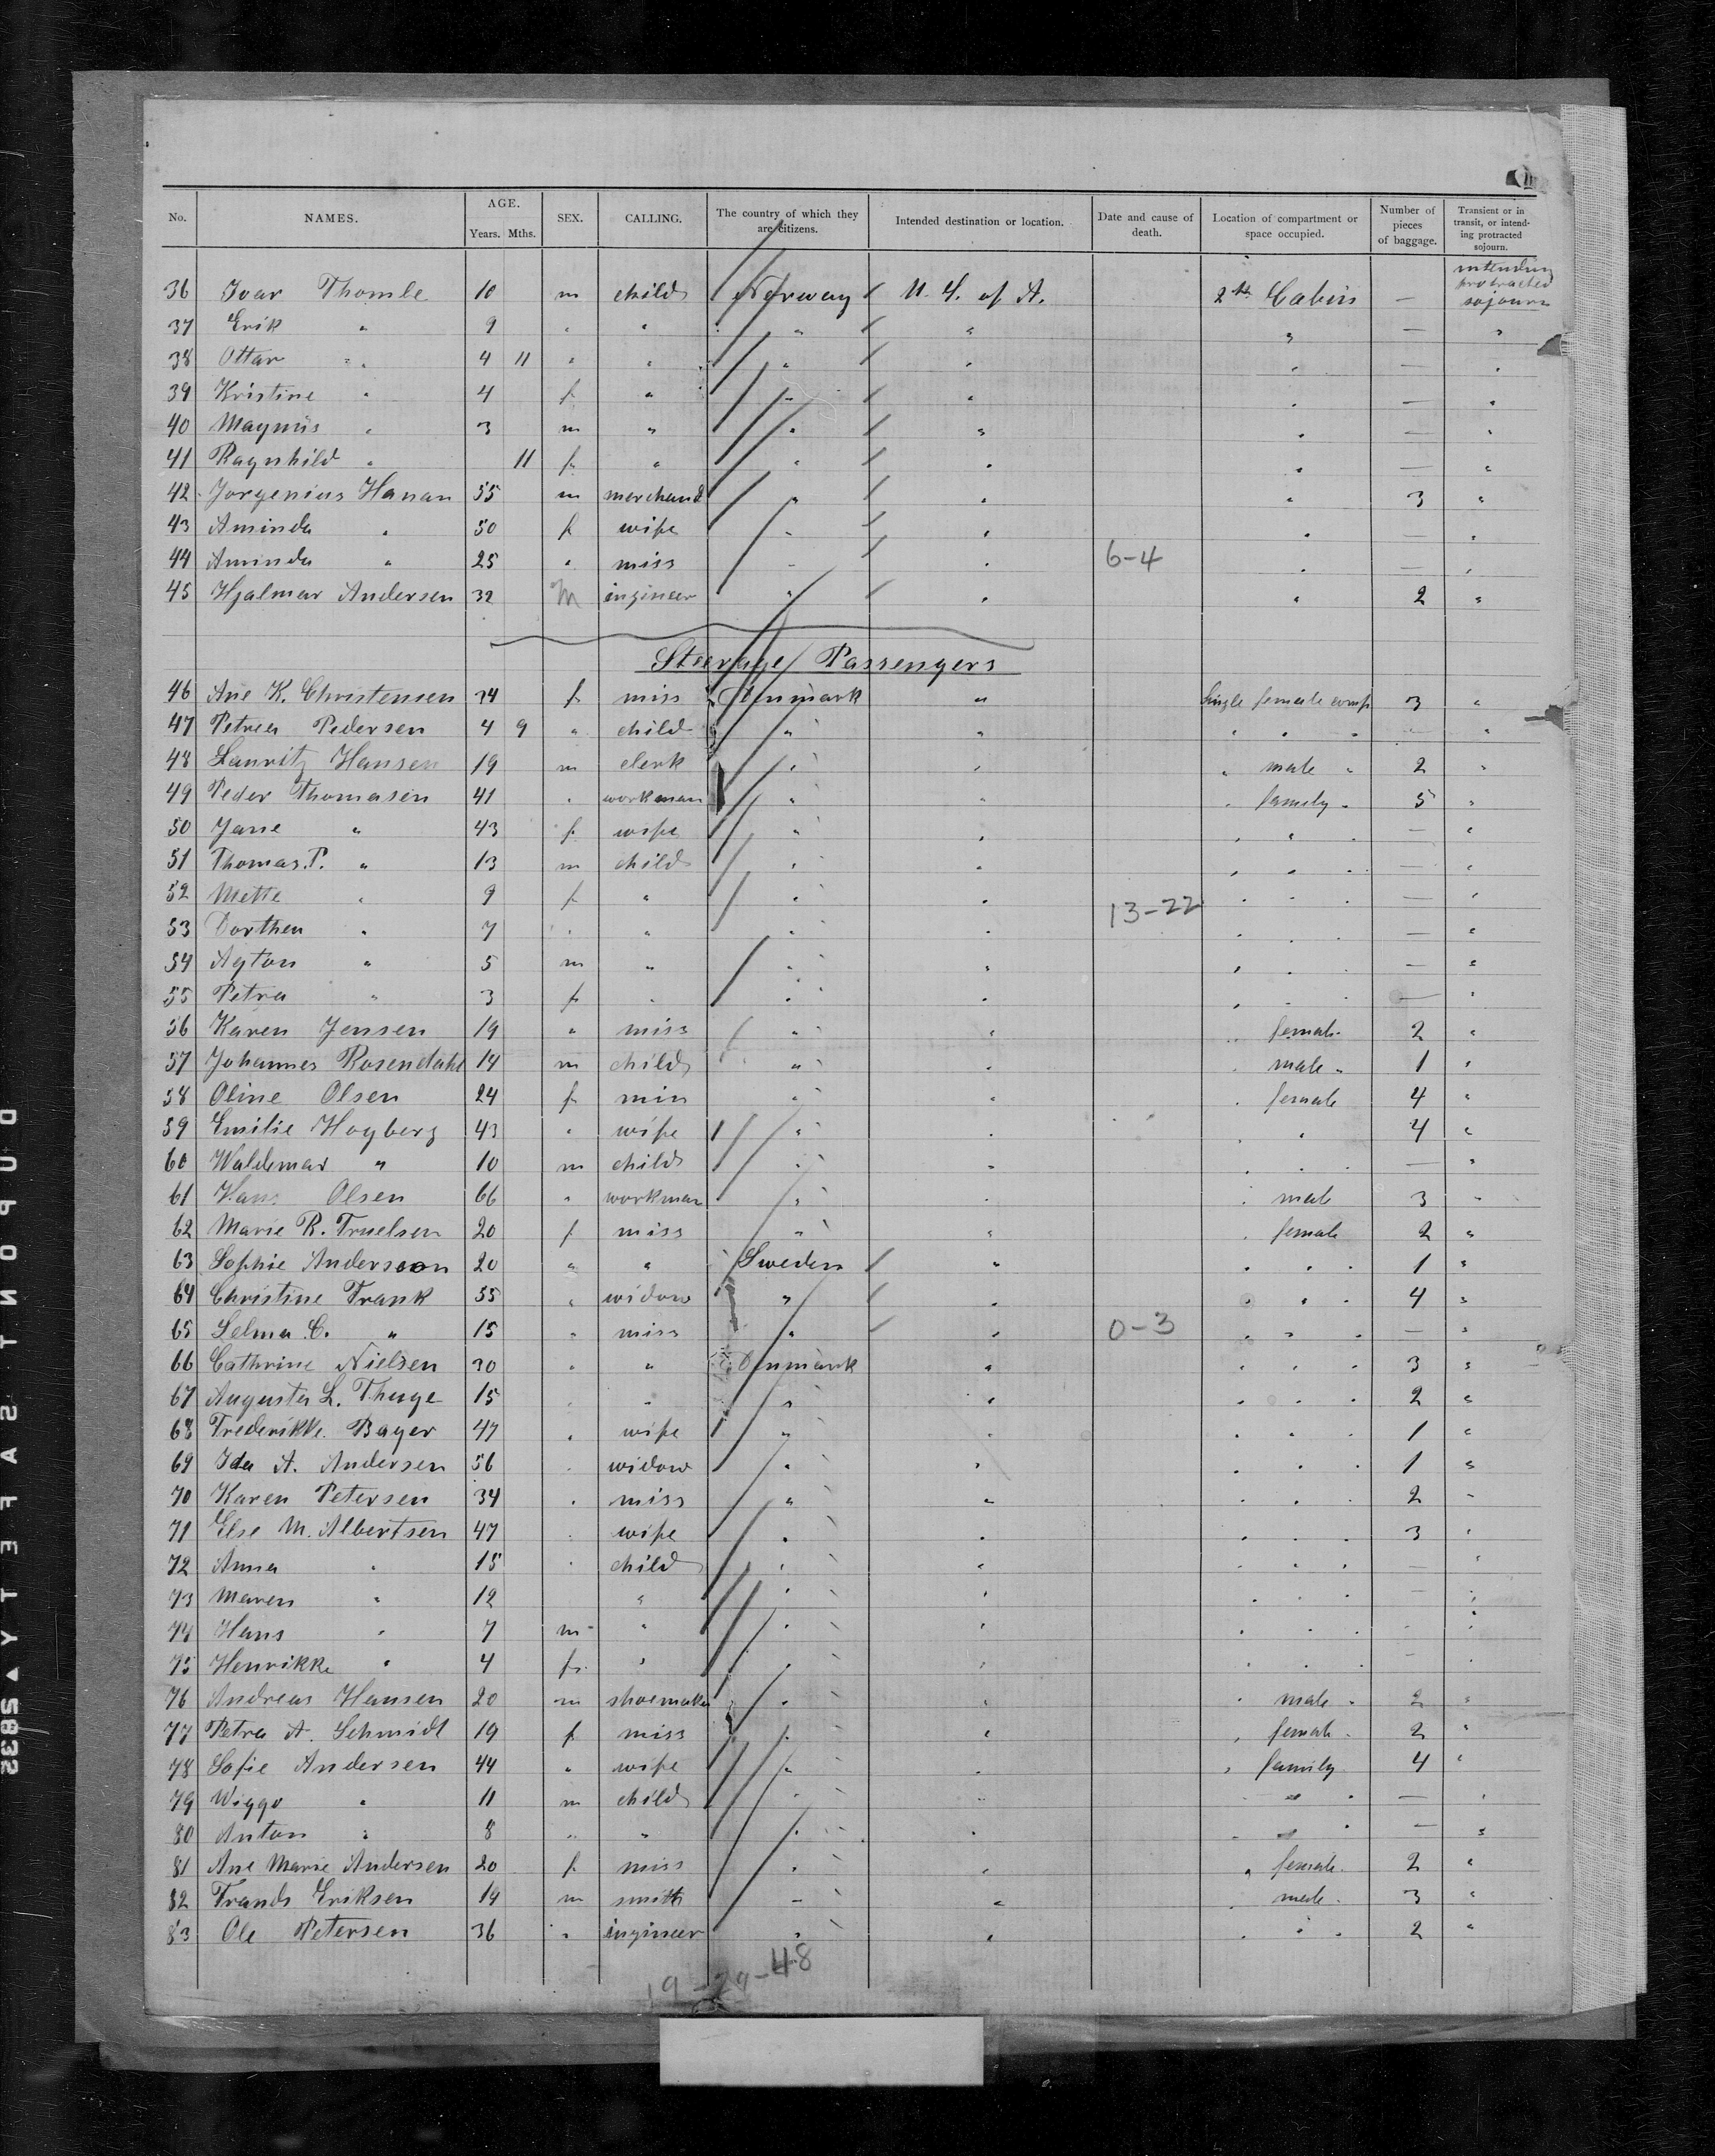 No. NAMES. AGE. Years. Mths. SEX. CALLING. The country of which they are citizens. Intended destination or location. Date and cause of death. Location of compartment or space occupied. Number of pieces of baggage. Transient or in transit, or intending protracted sojourn.
36 Ivar Thomle 10 m child Norway U. S. of A. 2nd Cabin — intending protracted sojourn
37 Erik " 9 " " " " " — "
38 Ottar " 4 11 " " " " " — "
39 Kristine " 4 f " " " " — "
40 Magnus " 3 m " " " " — "
41 Ragnhild " 11 f " " " " — "
42 Jorgenius Hanan 55 m merchand " " " 3 "
43 Aminda " 50 f wife " " " — "
44 Aminda " 25 " miss " " 6-4 " — "
45 Hjalmar Andersen 32 m engineer " " " 2 "
Steerage Passengers
46 Ane K. Christensen 24 f miss Denmark " Single female comp 3 "
47 Petrea Pedersen 4 9 " child " " " " " — "
48 Lauritz Hansen 19 m clerk " " " male " 2 "
49 Peder Thomasen 41 " workman " " " family " 5 "
50 Jane " 43 f wife " " " " — "
51 Thomas P. " 13 m child " " " " " — "
52 Mette " 9 f " " " " " " — "
13-22
53 Dorthea " 7 " " " " " " " — "
54 Agton " 5 m " " " " " " — "
55 Petra " 3 f " " " " " " — "
56 Karen Jensen 19 " miss " " " female 2 "
57 Johannes Rosendahl 14 m child " " " male " 1 "
58 Oline Olsen 24 f miss " " " female 4 "
59 Emilie Hogberg 43 " wife " " " " 4 "
60 Waldemar " 10 m child " " " " " — "
61 Hans Olsen 66 " workman " " " male 3 "
62 Marie R. Truelsen 20 f miss " " " female 2 "
63 Sophie Andersson 20 " " Sweden " " " " 1 "
64 Christine Frank 55 " widow " " " " " 4 "
65 Selma C. " 15 " miss " " 0-3 " " " — "
66 Cathrine Nielsen 30 " " Denmark " " " " 3 "
67 Augusta L. Thuge 15 " " " " " " " 2 "
68 Frederikke Bayer 47 " wife " " " " " 1 "
69 Ida A. Andersen 56 " widow " " " " " 1 "
70 Karen Petersen 34 " miss " " " " " 2 "
71 Else M. Albertsen 47 " wife " " " " " 3 "
72 Anna " 15 " child " " " " " — "
73 Maren " 12 " " " " " " — "
74 Hans " 7 m " " " " " " - "
75 Henrikke " 4 f " " " " " " - "
76 Andreas Hansen 20 m shoemaker " " " male " 2 "
77 Petra A. Schmidt 19 f miss " " " female " 2 "
78 Sofie Andersen 44 " wife " " " family 4 "
79 Wiggo " 11 m child " " " " " — "
80 Anton " 8 " " " " " " " — "
81 Ane Marie Andersen 20 f miss " " " female 2 "
82 Frands Eriksen 19 m smith " " " male 3 "
83 Ole Petersen 36 " engineer " " " " " 2 "
19-29-48
DUPONT SAFETY 5835